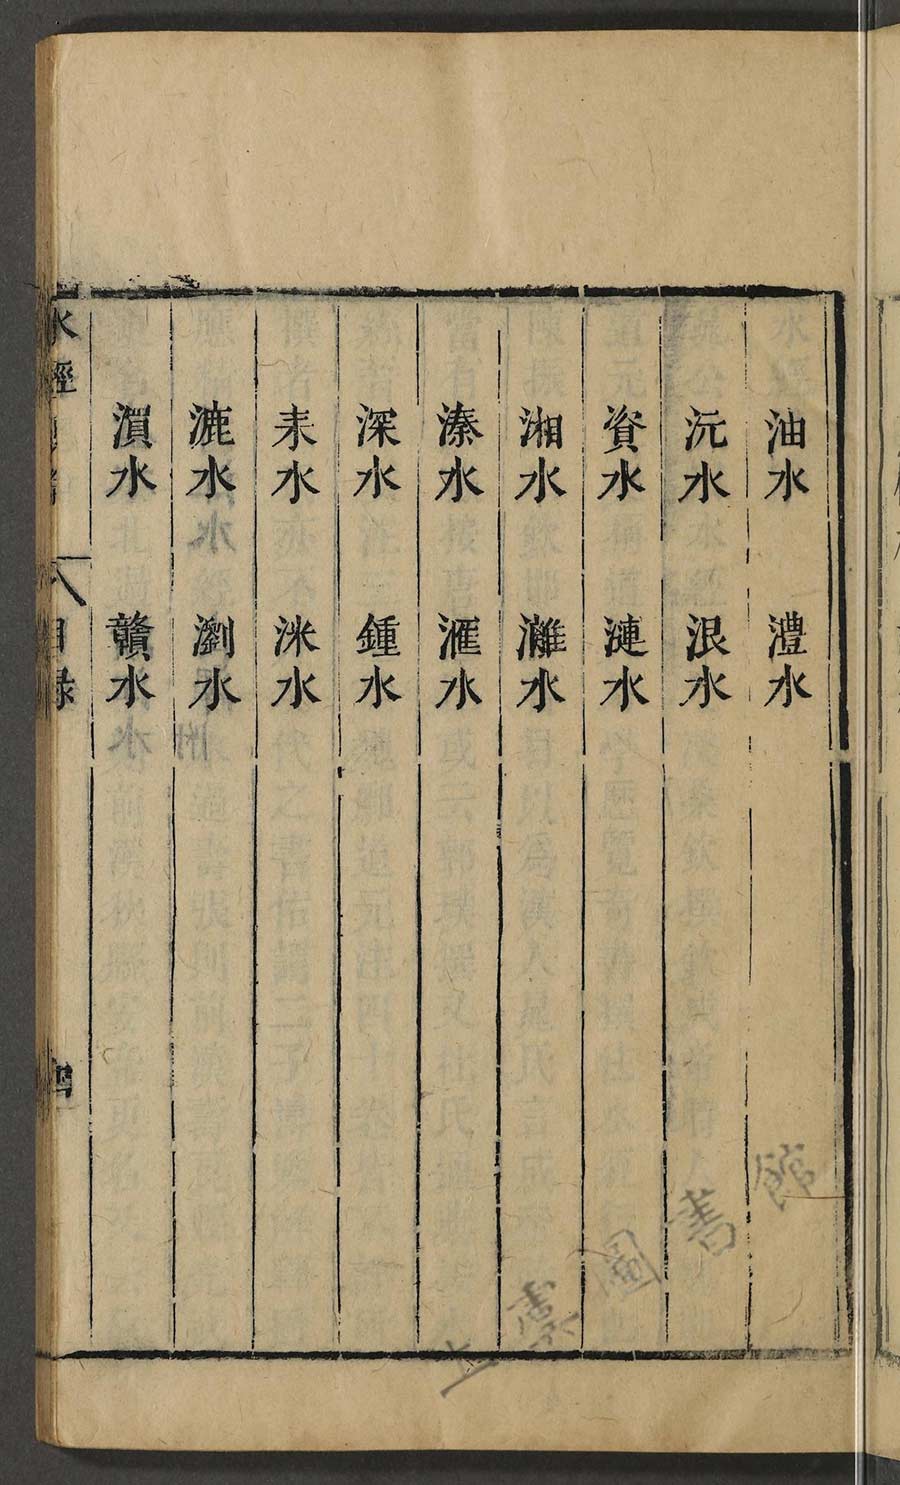 油水 澧水
沅水 浪水
資水 漣水
湘水 灕水
溱水 滙水
深水 鍾水
耒水 洣水
漉水 瀏水
溳水 贛水
水經
目錄
四
上虞圖書館